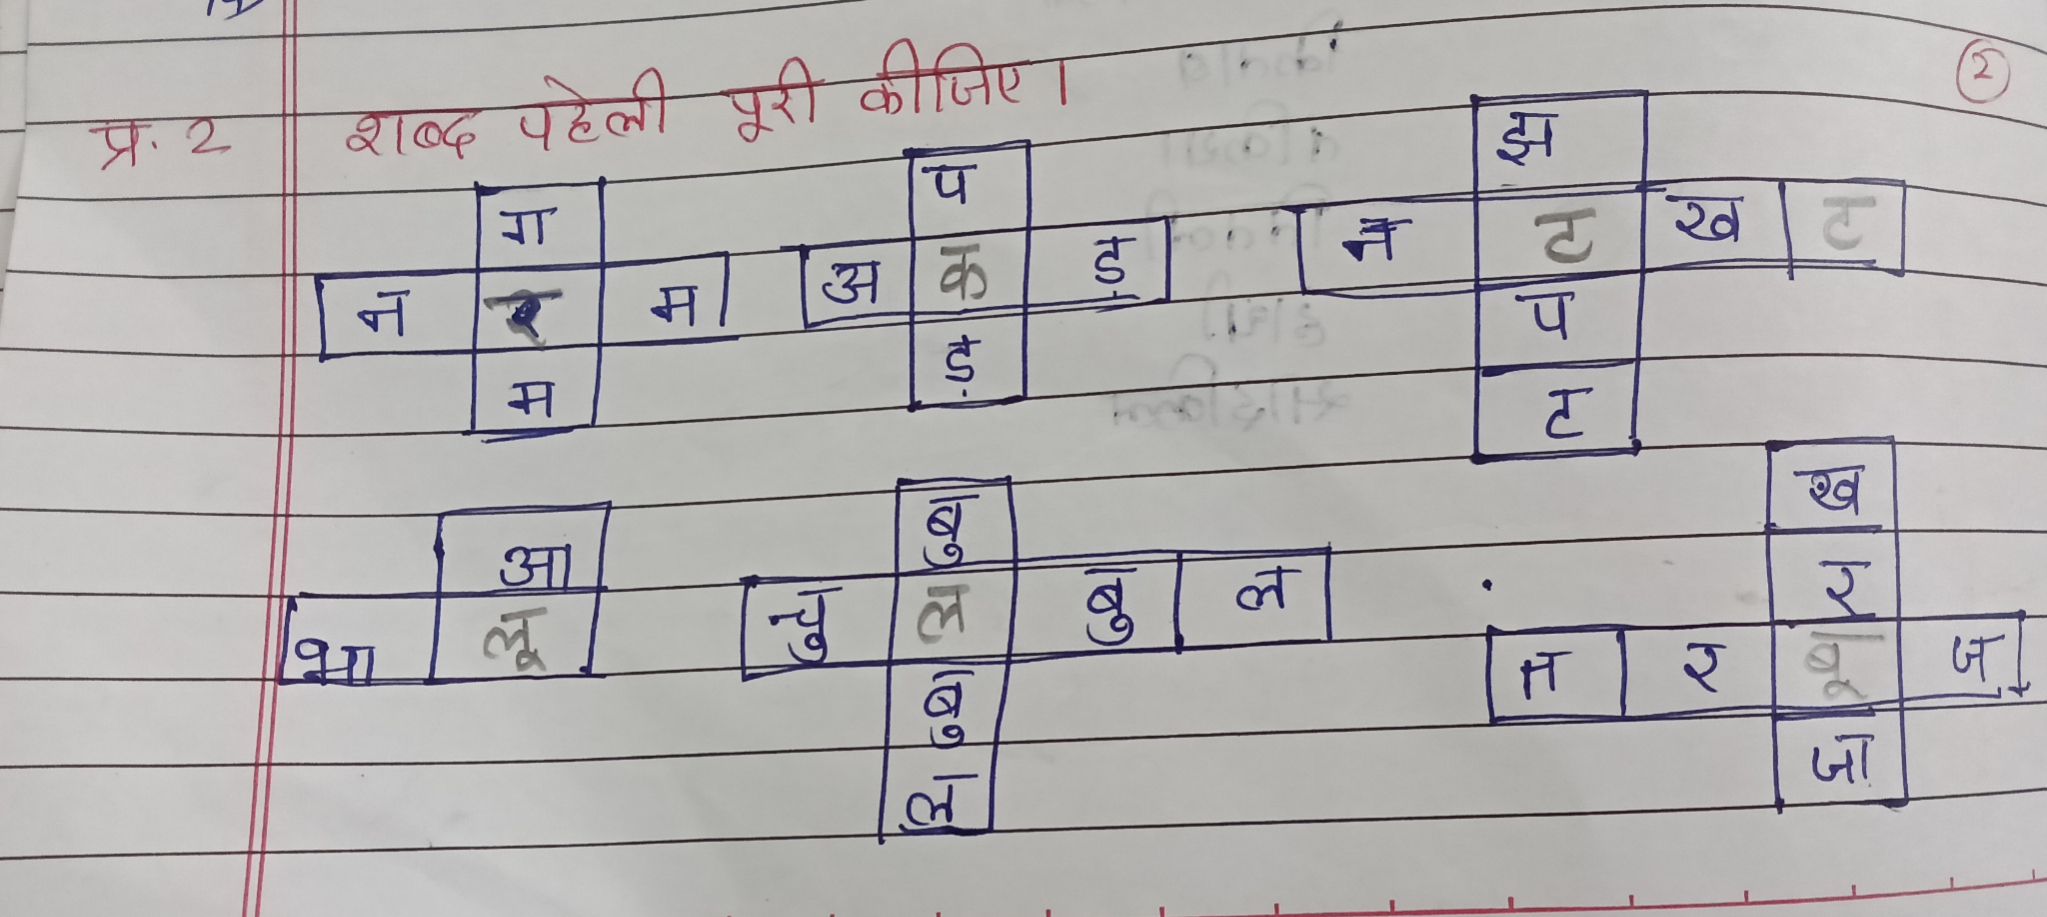 प्र. 2 शब्द पहेली पूरी कीजिए। 2
ग प झ
न र म अ क ड़ न ट ख ट
म ड़ प
ट
आ बु ख
भा लू चु ल बु ल र
बु त र बू ज
ल जा